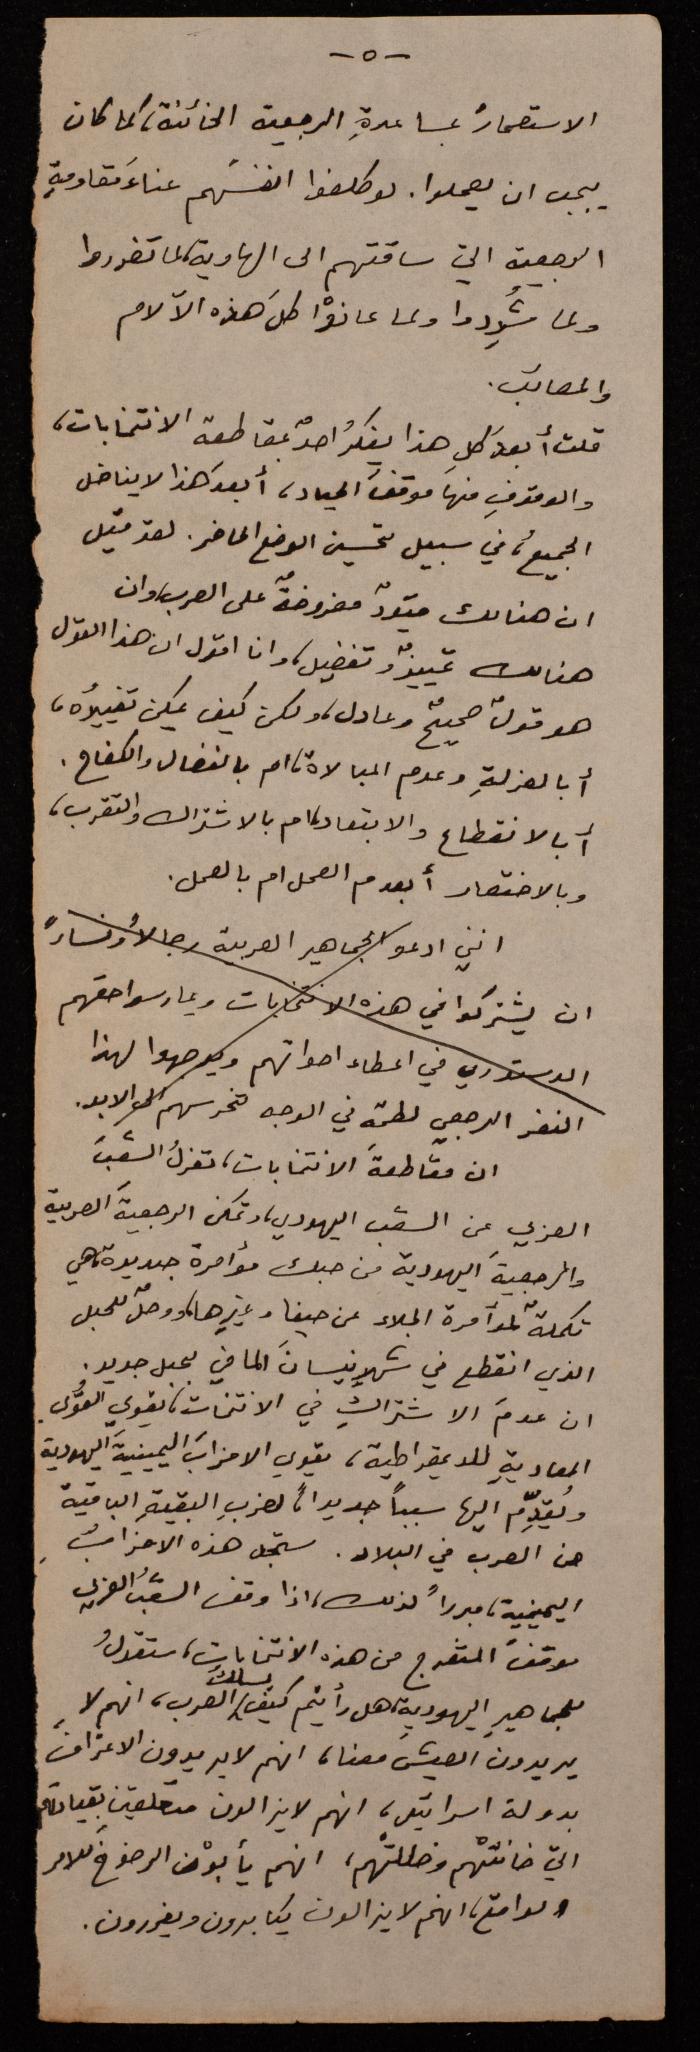 -٥-
الاستعمارُ بمساعدةِ الرجعية الخائنة، لما كان
يجب ان يعملوا. لو كلفوا انفسَهم عناءَ مقاومةِ
الرجعية التي ساقتهم الى الهاوية، لما تضرروا
ولما شُرِدوا ولما عانوْا كلَ هذه الآلام
والمصائب.
قلت أبعدَ كلِ هذا يفكرُ احدٌ بمقاطعة الانتخابات،
والوقوفِ منها موقفَ الحياد، أبعدَ هذا لا يناضل
الجميعُ، في سبيل تحسين الوضع الحاضر. لقد قيل
ان هنالك قيودٌ مفروضةٌ على العرب، وان
هنالك تمييزٌ وتفضيل، وانا اقول ان هذا القول
هو قولٌ صحيحٌ وعادل، ولكن كيف يمكن تغييرُه،
أبالعزلةِ وعدم المبالاة، ام بالنضال والكفاح.
أبالانقطاع والابتعاد، ام بالاشتراك والتقرب،
وبالاختصار أبعدم العمل ام بالعمل.
انني ادعو الجماهير العربية رجالاً ونساءً
ان يشتركوا في هذه الانتخابات ويمارسوا حقهم
الدستوري في اعطاء اصواتهم ويوجهوا لهذا
النفر الرجعي لطمة في الوجه تخرسهم الى الابد.
ان مقاطعةَ الانتخابات، تعزلُ الشعبَ
العربي عن الشعب اليهودي، وتمكن الرجعيةَ العربية
والرجعيةَ اليهودية من حبك مؤامرة جديدة، هي
تكملةٌ لمؤامرة الجلاء عن حيفا وغيرِها، ووصلٌ للحبل
الذي انقطع في شهرِ نيسانَ الماضي بحبل جديد.
ان عدمَ الاشتراكِ في الانتخابات، يقوي القوَى
المعاديةِ للديمقراطية، يقوي الاحزابَ اليمينيةَ اليهودية
ويُقدِّم اليها سبباً جديداً، لضربِ البقيةِ الباقية
من العرب في البلاد. ستجل هذه الاحزابُ
اليمينية، مبرراً لذلك، اذا وقف الشعبُ العربي
موقفَ المتفرج من هذه الانتخابات، ستقولُ
للجماهيرِ اليهودية، هل رأيتم كيف يسلك العرب، انهم لا
يريدون العيشَ معنا، انهم لا يريدون الاعترافَ
بدولة اسرائيل، انهم لايزالون متعلقين بقيادتهم
التي خانتْهم وضللتْهم، انهم يأبوْن الرضوخَ للامر
الواقع، انهم لايزالون يكابرون ويغررون.